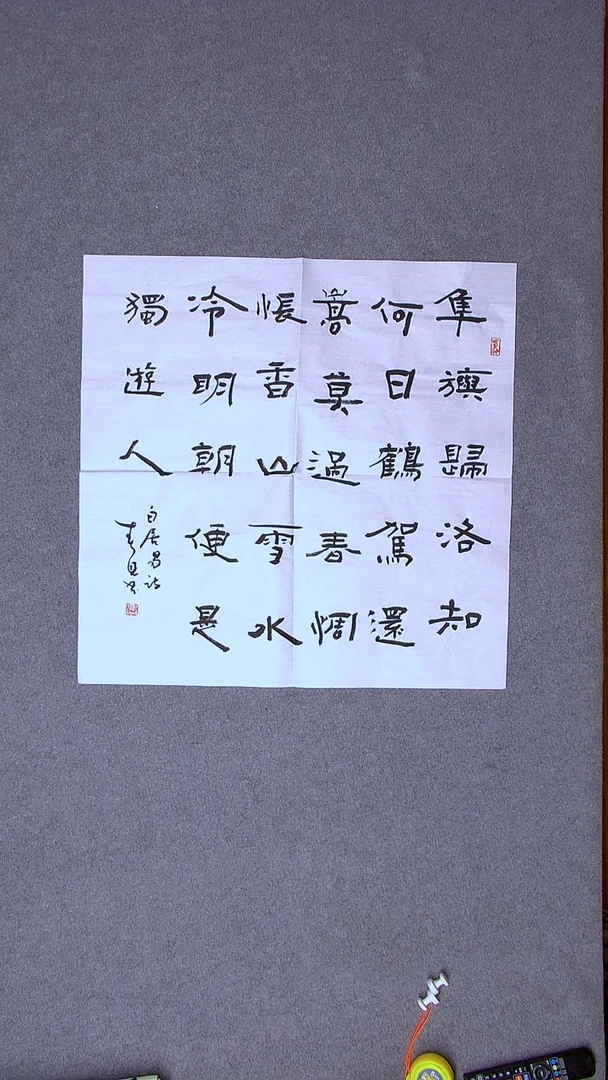 隼旟歸洛知
何日鶴駕還
嵩莫過春惆
悵香山雪水
冷明朝便是
獨遊人
白居易詩